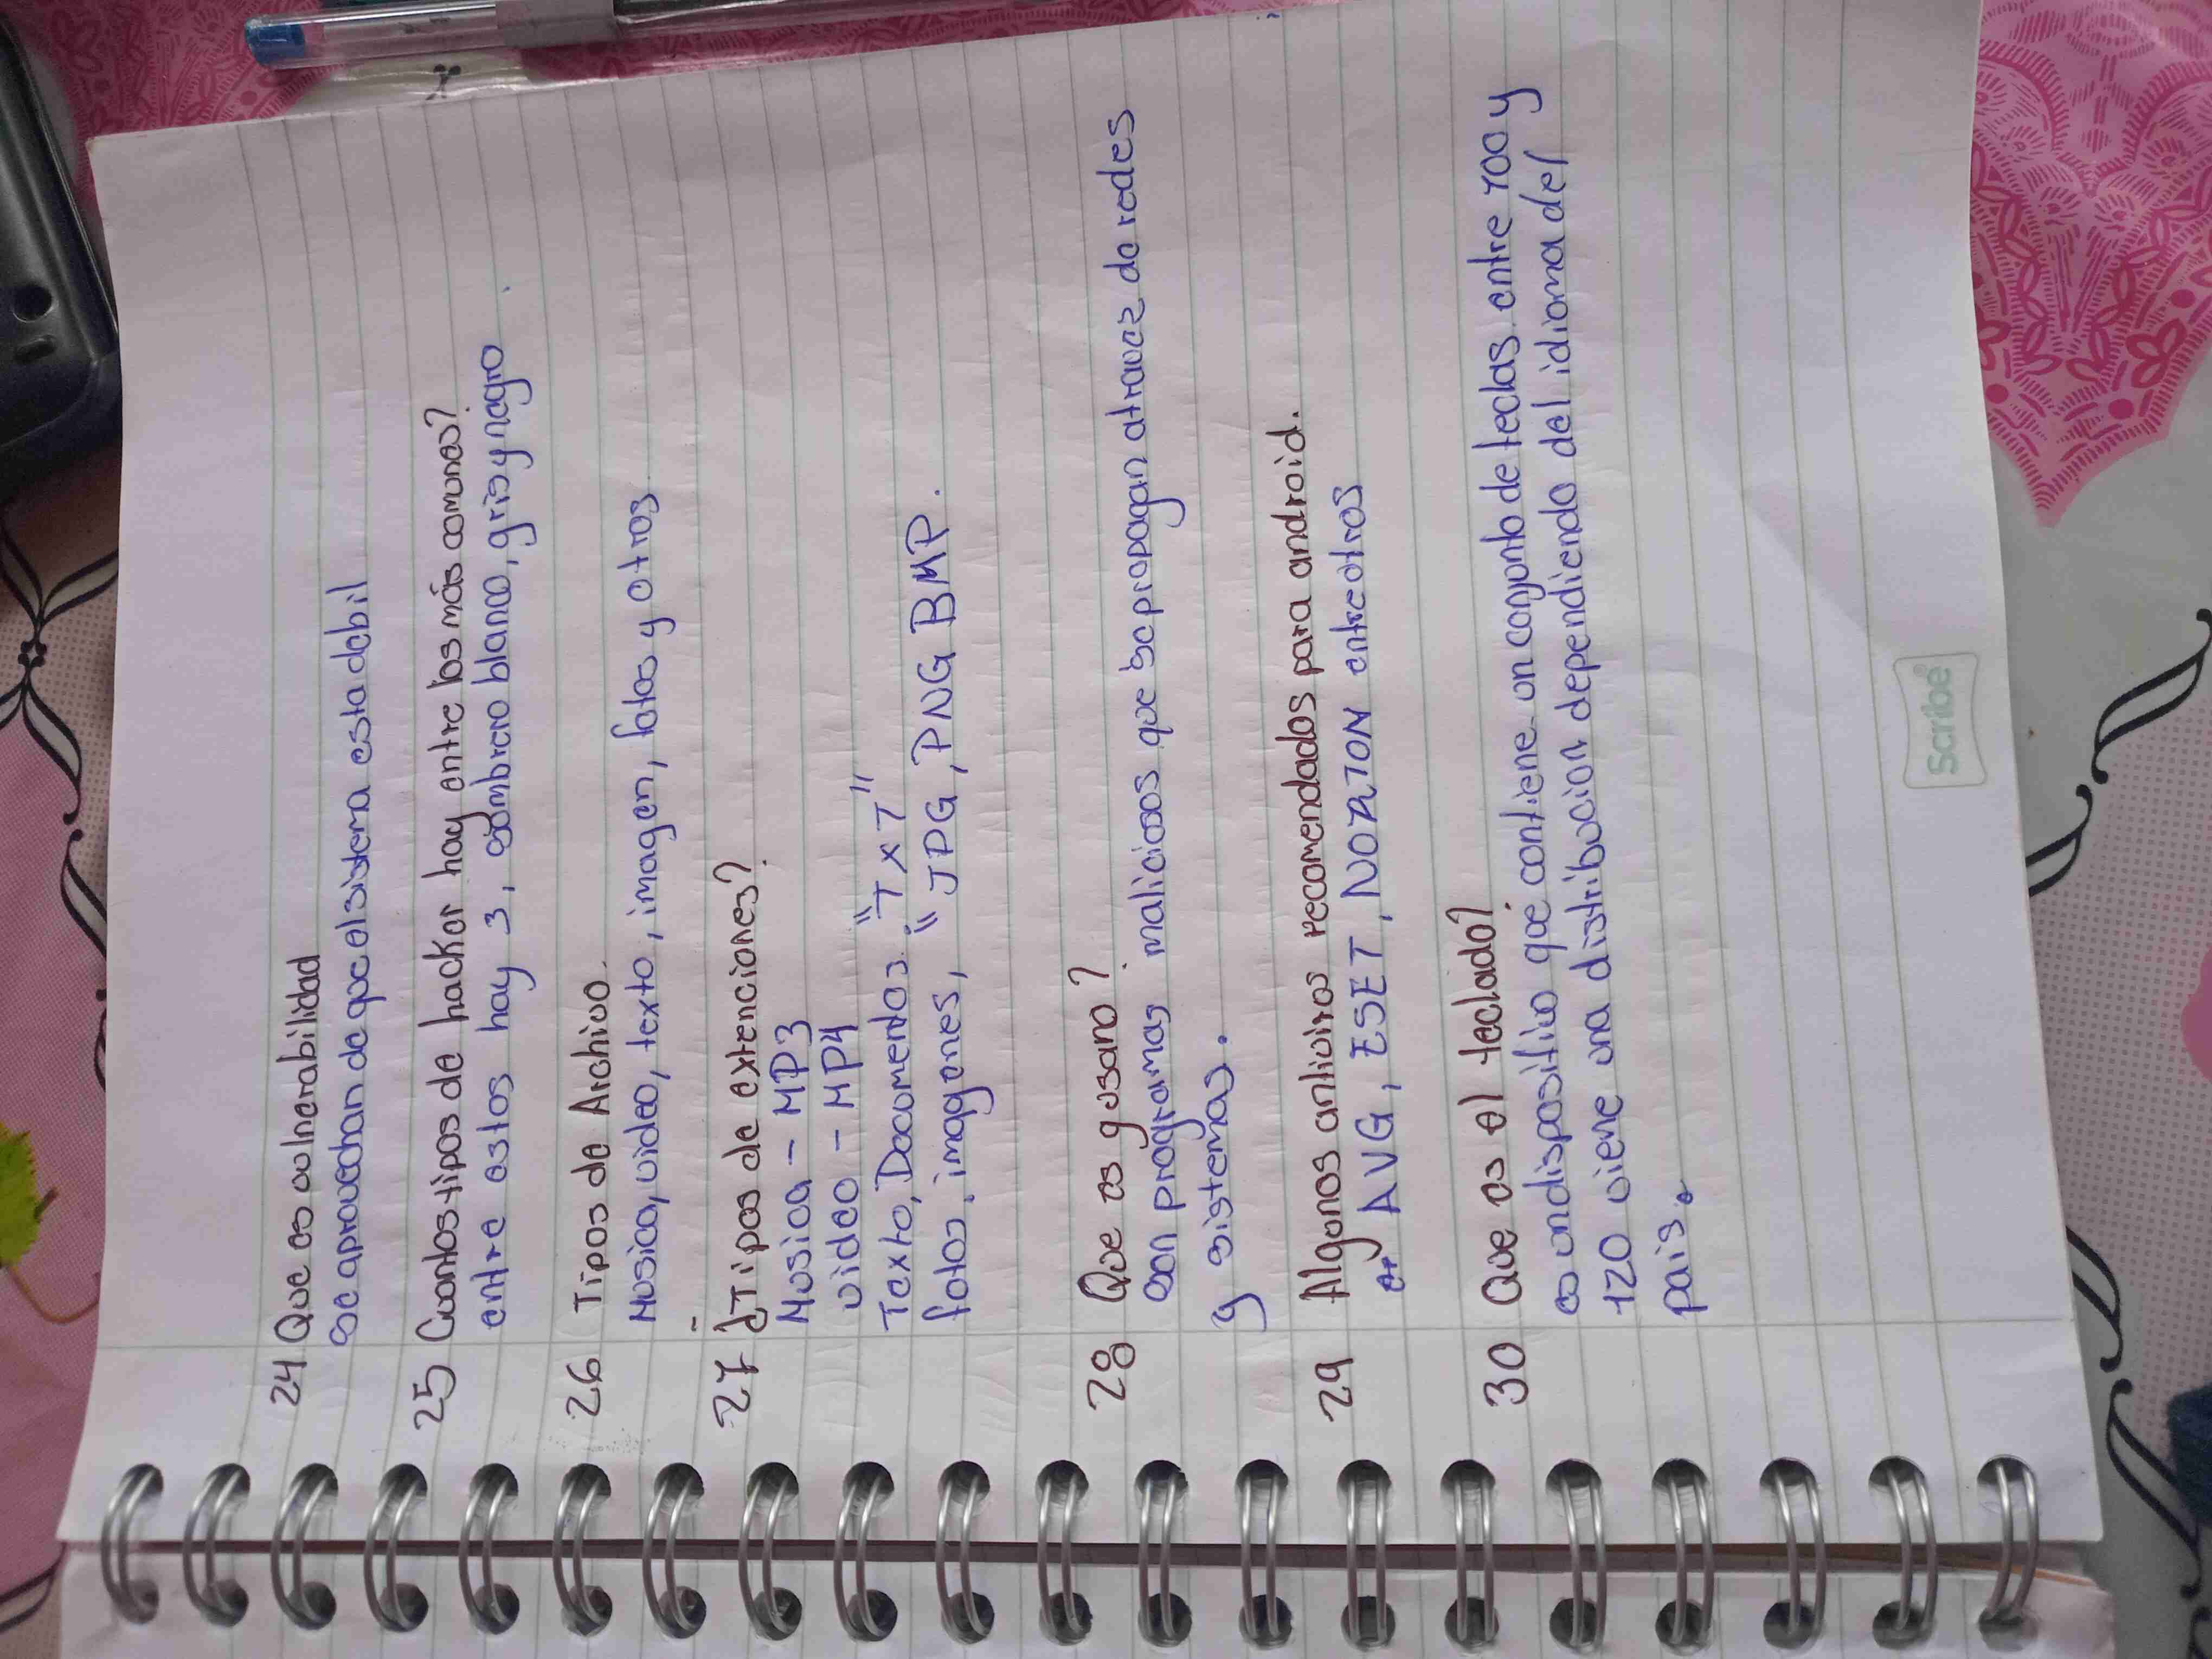 24 Que es vulnerabilidad
se aprovechan de que el sistema esta debil
25 Cuantos tipos de hacker hay entre los más comunes?
entre estos hay 3, sombrero blanco, gris y negro
26 Tipos de Archivo.
Musica, video, texto, imagen, fotos y otros
27 ¿Tipos de extenciones?
Musica - MP3
video - MP4
Texto, Documentos. "TXT"
fotos, imagenes, "JPG, PNG BMP.
28 Que es gusano?
son programas maliciosos que se propagan atravez de redes
y sistemas.
29 Algunos antivirus recomendados para android.
AVG, ESET, NORTON entre otros
30 Que es el teclado?
es un dispositivo que contiene un conjunto de teclas entre 100 y
120 viene una distribucion dependiendo del idioma del
pais.
Scribe®